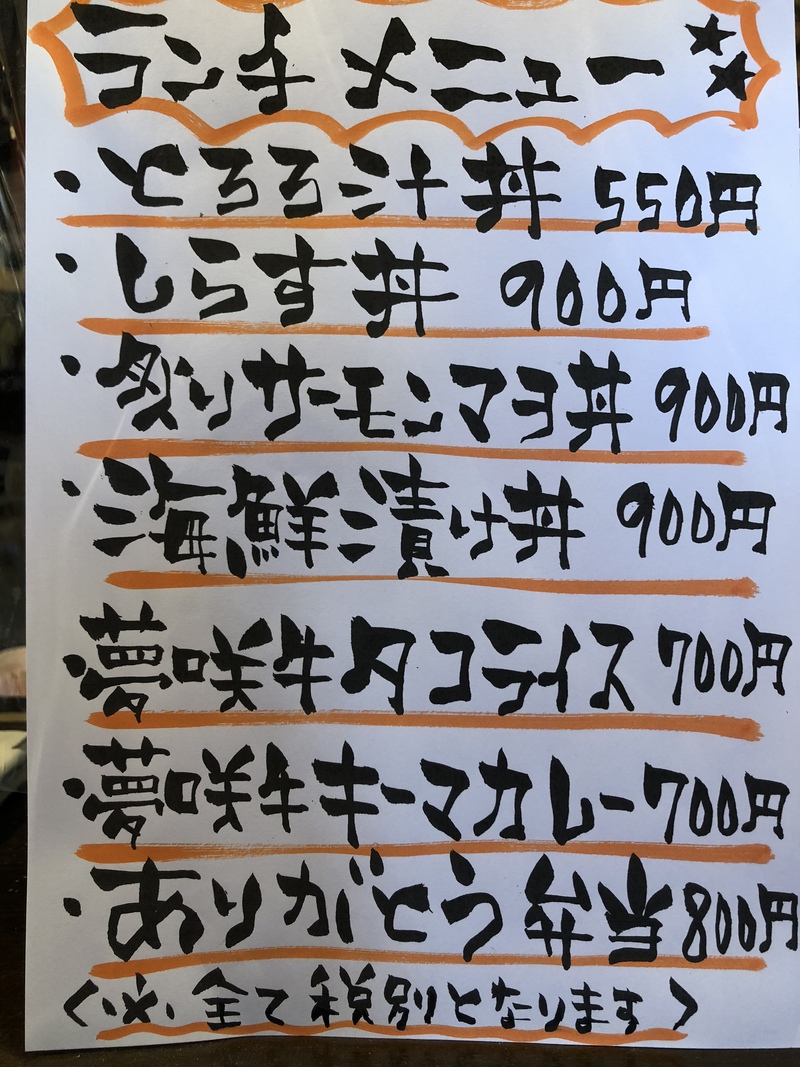 ランチメニュー★★
・とろろ汁丼 550円
・しらす丼 900円
・炙りサーモンマヨ丼 900円
・海鮮漬け丼 900円
・夢咲牛タコライス 700円
・夢咲牛キーマカレー 700円
・ありがとう弁当 800円
〈※全て税別となります〉